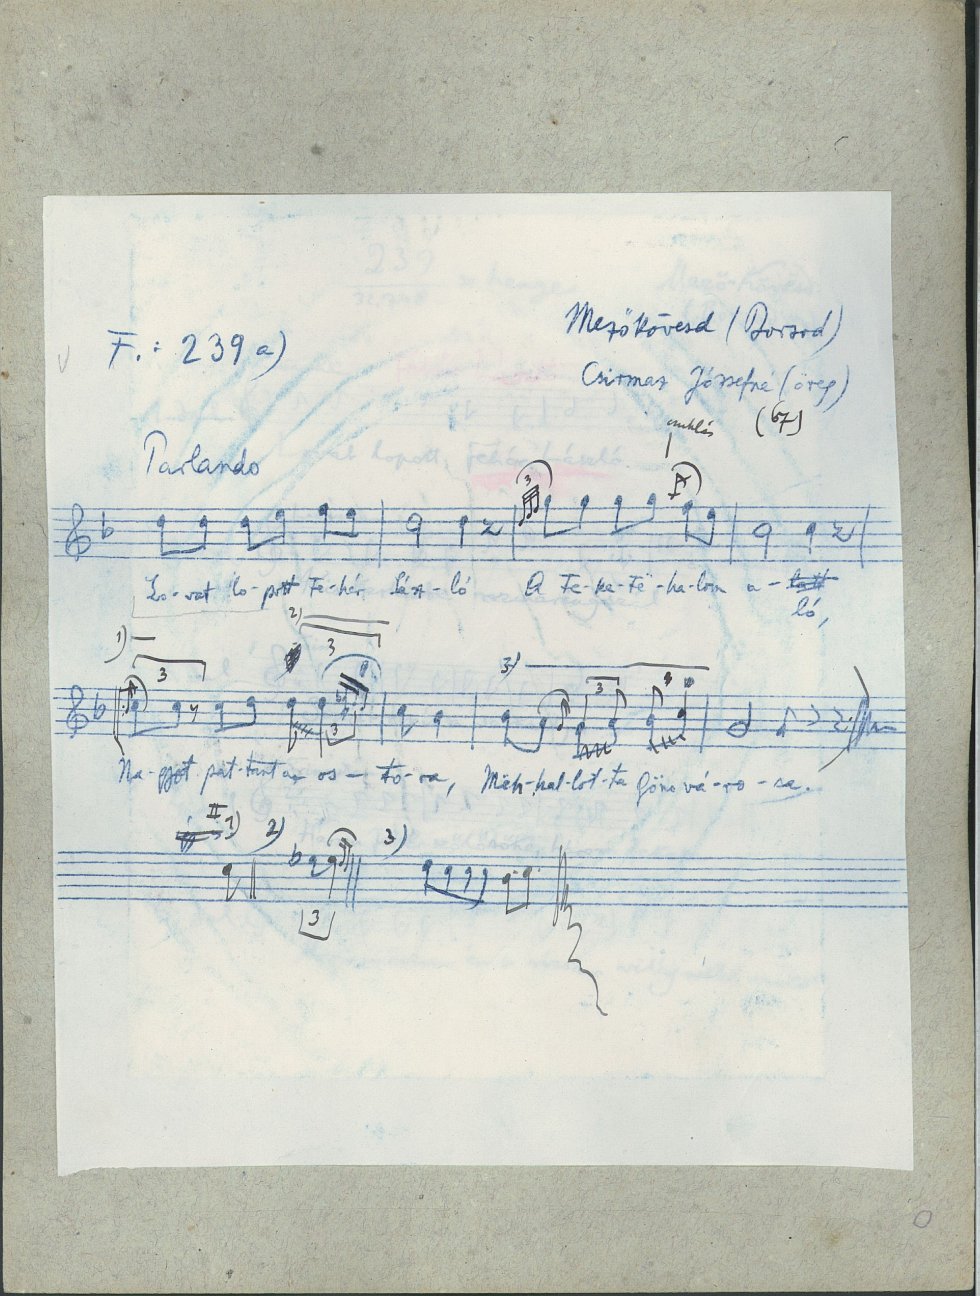 F.: 239 a)
Mezőkövesd (Borsod)
Csirmaz Józsefné (öreg)
(67)
Parlando
3
Lo-vat lo-pott Fe-hér Lász-ló A Fe-ke-te-ha-lom a-latt
ló,
1) 2) 3)
3 3 3 3
Na-gyot pat-tant az os-to-ra, Meh-hal-lot-ta Gönc vá-ro-sa.
II
1) 2) 3)
3